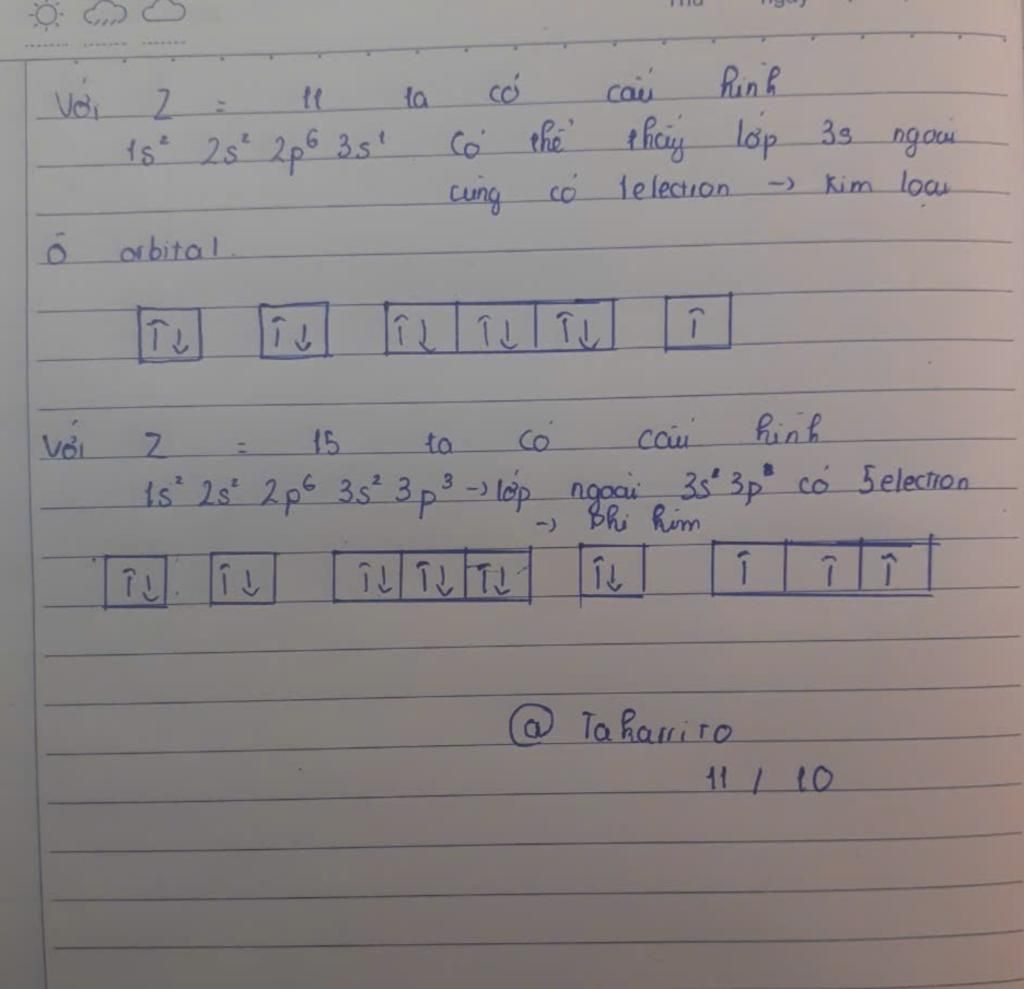 Thứ ngày
Với Z = 11 ta có cấu hình
1s² 2s² 2p⁶ 3s¹ Có thể thấy lớp 3s ngoài
cùng có 1election → Kim loại
Ô orbital.
↑↓ ↑↓ ↑↓ ↑↓ ↑↓ ↑
Với Z = 15 ta có cấu hình
1s² 2s² 2p⁶ 3s² 3p³ → lớp ngoài 3s² 3p³ có 5election
→ Phi kim
↑↓ ↑↓ ↑↓ ↑↓ ↑↓ ↑↓ ↑ ↑ ↑
@
11 / 10